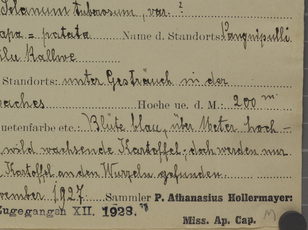 Solanum tuberosum, var. ?
apa = patata Name d. Standorts: Panguipulli
ilu Kallwe
Standorts: unter Gesträuch in der
baches Hoehe ue. d. M.: 200 m
uetenfarbe etc.: Blüte blau, über Meter hoch -
wild wachsende Kartoffel; doch werden nur
Kartoffel an den Wurzeln gefunden.
vember 1927 Sammler P. Athanasius Hollermayer:
Zugegangen XII. 1928.
Miss. Ap. Cap.